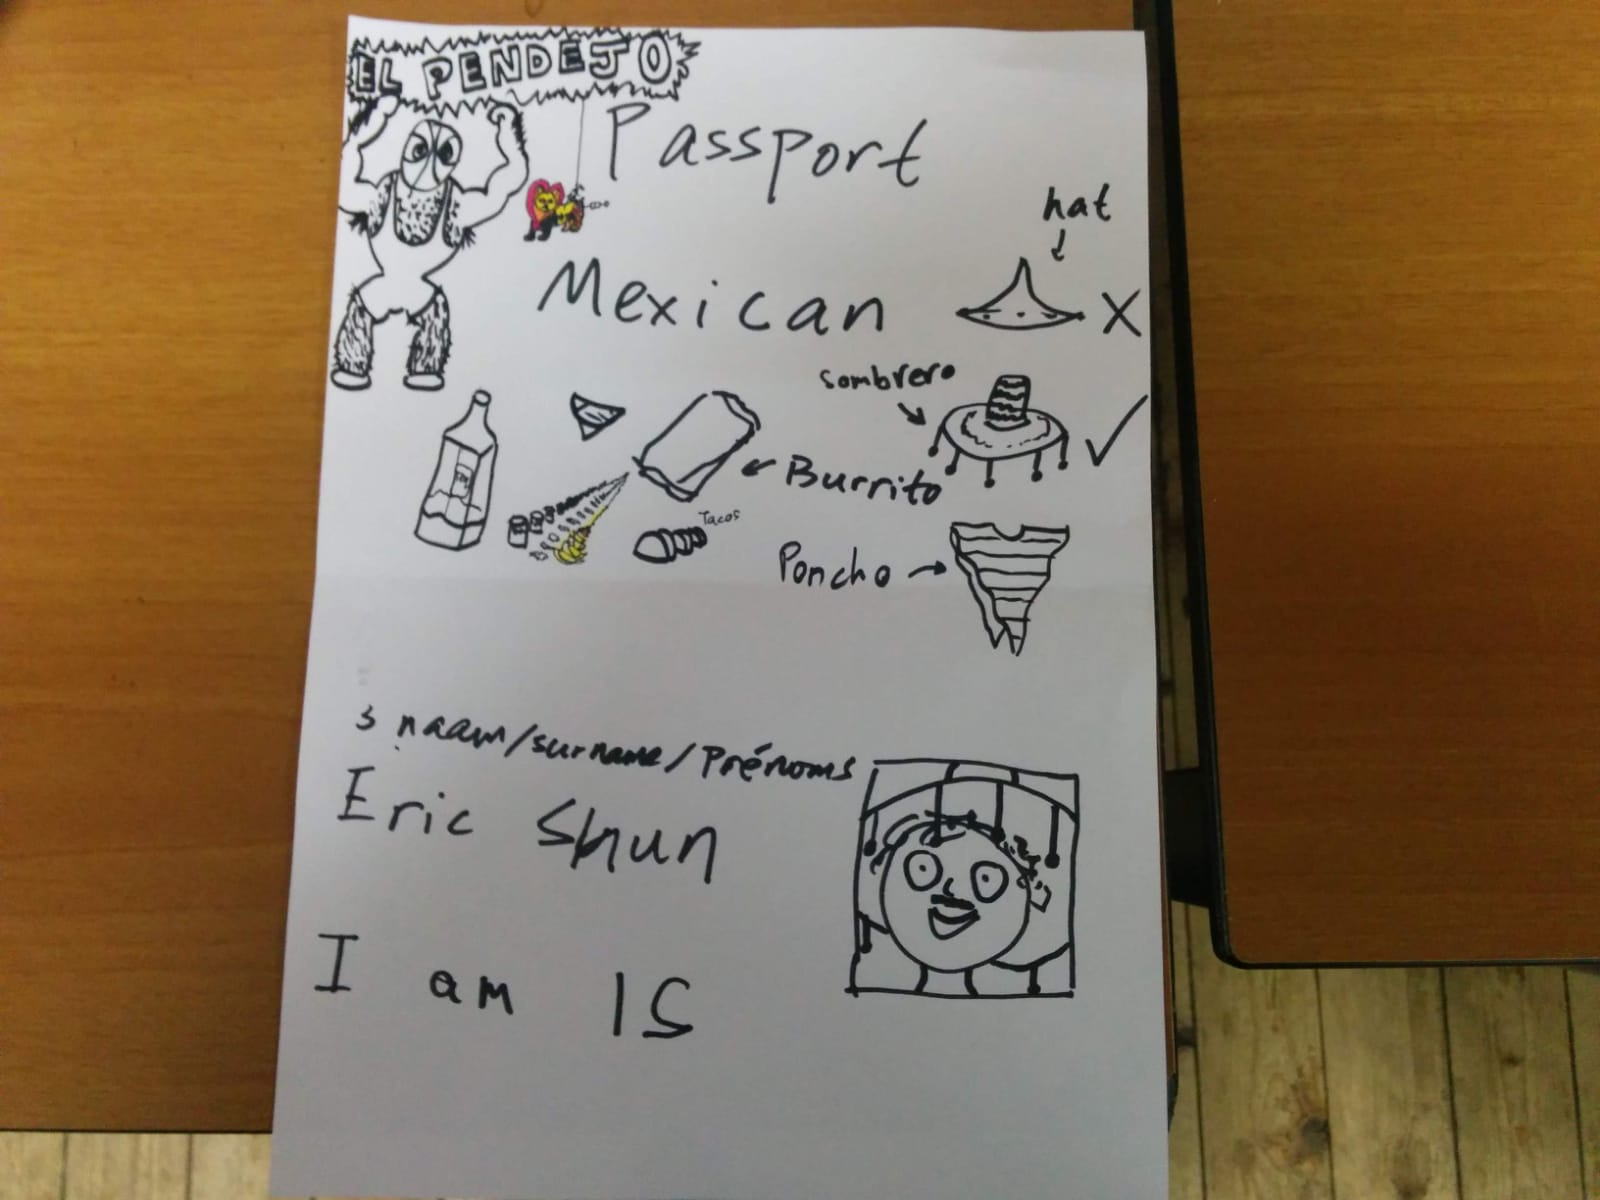 EL PENDEJO
Passport
hat
Mexican
X
sombrero
Burrito
Tacos
Poncho
s naam/surname/Prénoms
Eric Shun
I am 15